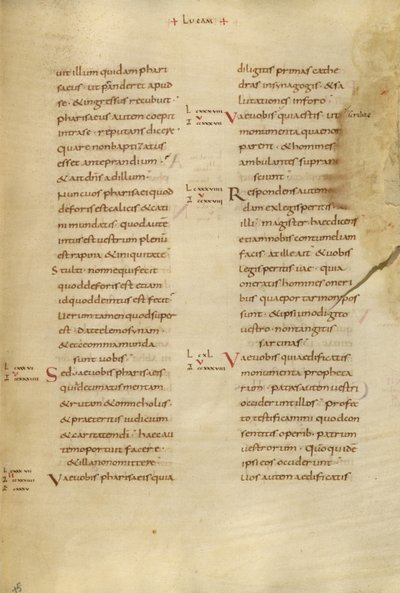 LUCAM
uit illum quidam phari
saeus · ut pranderet apud
se · & ingressus recubuit
pharisaeus autem coepit
intra se · reputans dicere
quare non baptizatus
esset ante prandium
& ait dns ad illum
Nunc uos pharisaei quod
de foris est calicis & cati
ni mundatis · quod autem
intus est uestrum plenu
est rapina & iniquitate
Stulti · nonne qui fecit
quod de foris est etiam
id quod de intus est fecit
Uerumtamen quod super
est · date elemosynam
& ecce omnia munda
sunt uobis
L cxxxvi
Sed uae uobis pharisaeis
quia decimatis mentam
& rutam & omne holus
& praeteritis iudicium
& caritatem di haec au
tem oportuit facere
& illa non omittere
L cxxxvii
Uae uobis pharisaeis quia
diligitis primas cathe
dras in synagogis & sa
lutationes in foro
L cxxxviii
Uae uobis quia estis ut
scribae
monumenta quae non
parent · & homines
ambulantes supra ne
sciunt
L cxxxviiii
Respondens autem
dam ex legis peritis
illi magister haec dicens
etiam nobis contumeliam
facis at ille ait & uobis
legis peritis uae · quia
oneratis homines oneri
bus quae portari non pos
sunt & ipsi uno digito
uestro non tangitis
sarcinas
L cxL
Uae uobis quia aedificatis
monumenta propheta
rum · patres autem uestri
occiderunt illos profec
to testificamini quod con
sentitis operib. patrum
uestrorum · Qm quide
ipsi eos occiderunt
uos autem aedificatis